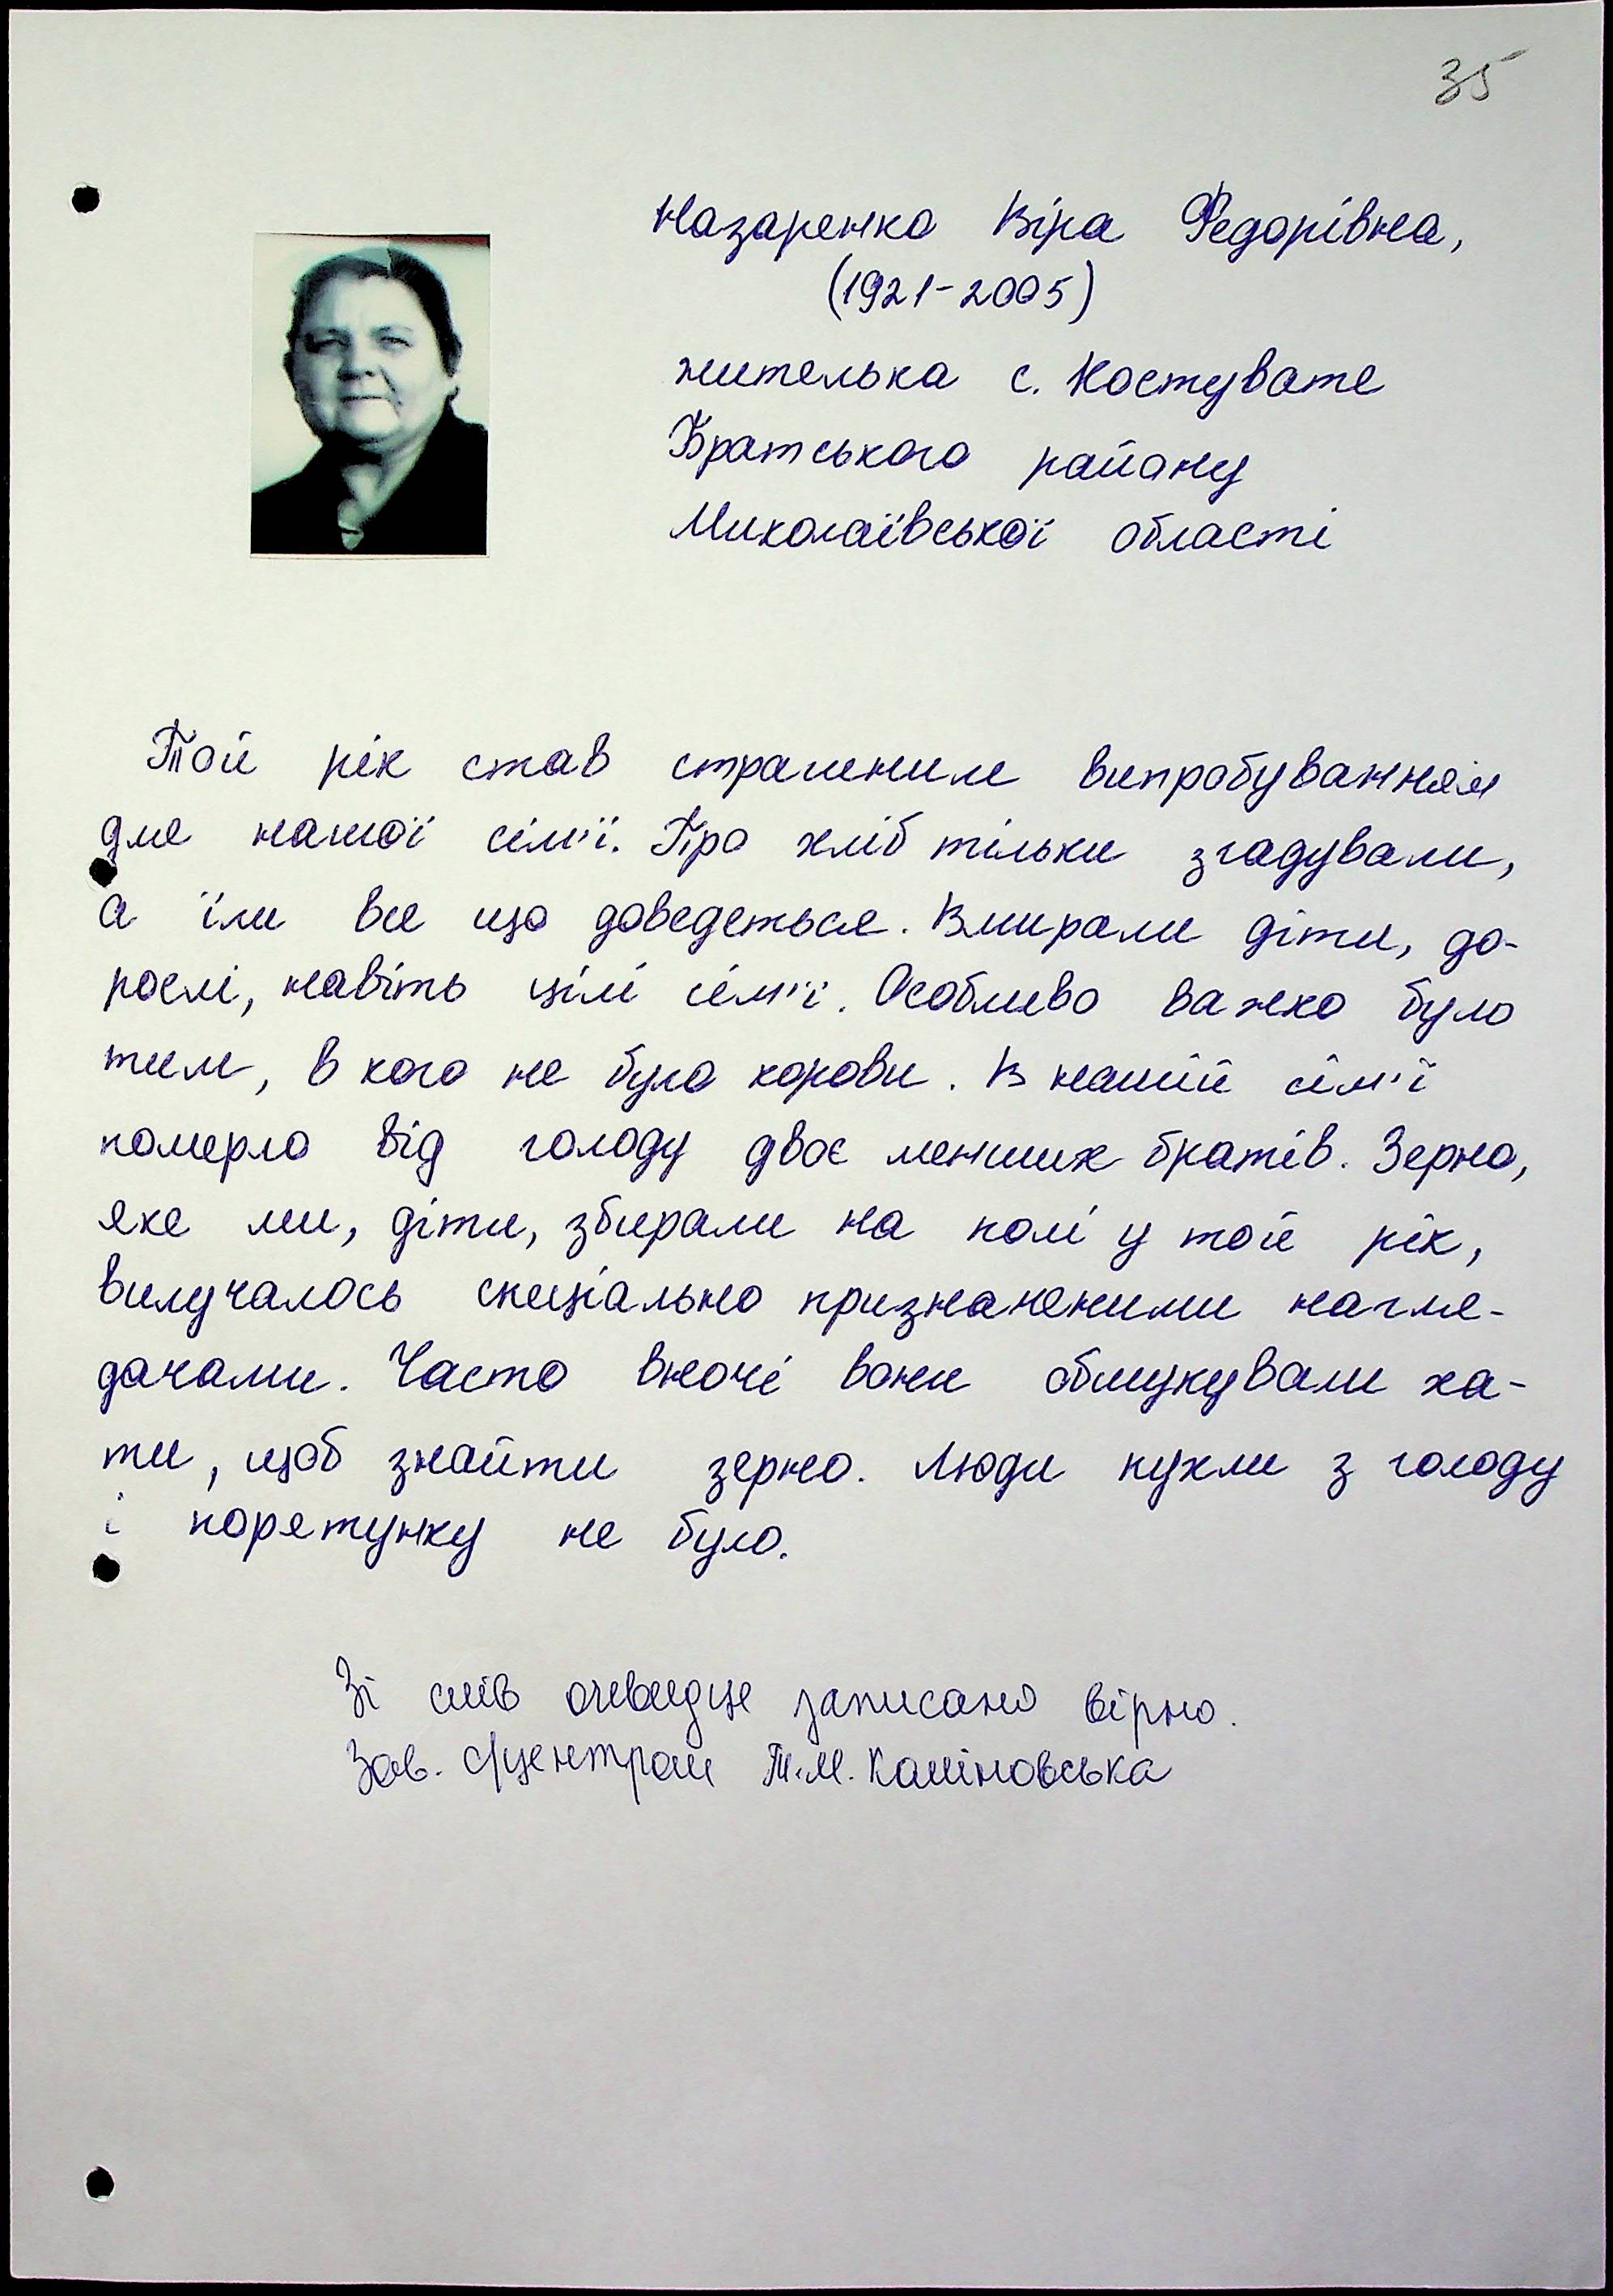 35
Назаренко Віра Федорівна,
(1921-2005)
жителька с. Костувате
Братського району
Миколаївської області
Той рік став страшним випробуванням
для нашої сім'ї. Про хліб тільки згадували,
а їли все що доведеться. Вмирали діти, до-
рослі, навіть цілі сім'ї. Особливо важко було
тим, в кого не було корови. В нашій сім'ї
померло від голоду двоє менших братів. Зерно,
яке ми, діти, збирали на полі у той рік,
вилучалось спеціально призначеними нагля-
дачами. Часто вночі вони обшукували ха-
ти, щоб знайти зерно. Люди пухли з голоду
і порятунку не було.
Зі слів очевидця записано вірно.
Зав. ф/центром Т.М. Каліновська